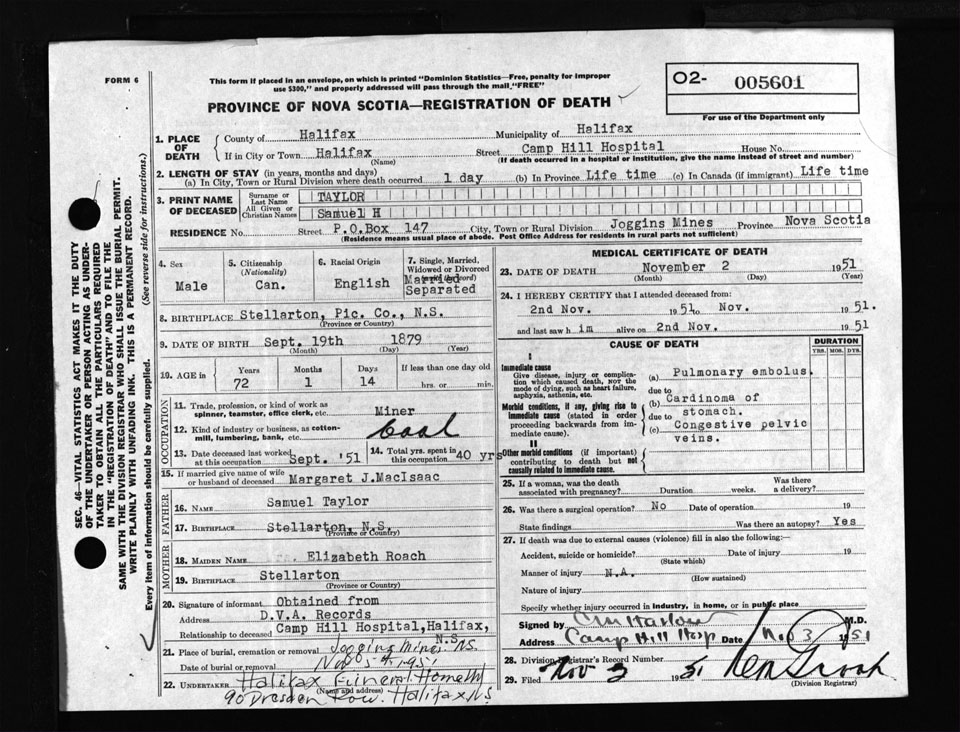 FORM 6
This form if placed in an envelope, on which is printed "Dominion Statistics—Free, penalty for improper
use $300," and properly addressed will pass through the mail "FREE"
O2- 005601
For use of the Department only
PROVINCE OF NOVA SCOTIA—REGISTRATION OF DEATH
SEC. 46—VITAL STATISTICS ACT MAKES IT THE DUTY
OF THE UNDERTAKER OR PERSON ACTING AS UNDER-
TAKER TO OBTAIN ALL THE PARTICULARS REQUIRED
IN THE "REGISTRATION OF DEATH" AND TO FILE THE
SAME WITH THE DIVISION REGISTRAR WHO SHALL ISSUE THE BURIAL PERMIT.
WRITE PLAINLY WITH UNFADING INK. THIS IS A PERMANENT RECORD.
Every item of information should be carefully supplied. (See reverse side for instructions.)
1. PLACE OF DEATH
County of Halifax Municipality of Halifax
If in City or Town Halifax Street Camp Hill Hospital House No.
(Name) (If death occurred in a hospital or institution, give the name instead of street and number)
2. LENGTH OF STAY (in years, months and days)
(a) In City, Town or Rural Division where death occurred 1 day (b) In Province Life time (c) In Canada (if immigrant) Life time
3. PRINT NAME OF DECEASED
Surname or Last Name TAYLOR
All Given or Christian Names Samuel H
RESIDENCE No. Street P.O.Box 147 City, Town or Rural Division Joggins Mines Province Nova Scotia
(Residence means usual place of abode. Post Office Address for residents in rural parts not sufficient)
4. Sex
Male
5. Citizenship
(Nationality)
Can.
6. Racial Origin
English
7. Single, Married,
Widowed or Divorced
Married
Separated
8. BIRTHPLACE Stellarton, Pic. Co., N.S.
(Province or Country)
9. DATE OF BIRTH Sept. 19th 1879
(Month) (Day) (Year)
10. AGE in Years Months Days If less than one day old
72 1 14 hrs. or min.
OCCUPATION
11. Trade, profession, or kind of work as
spinner, teamster, office clerk, etc. Miner
12. Kind of industry or business, as cotton-
mill, lumbering, bank, etc. Coal
13. Date deceased last worked
at this occupation Sept. '51
14. Total yrs. spent in
this occupation 40 yrs
15. If married give name of wife
or husband of deceased Margaret J.MacIsaac
FATHER
16. NAME Samuel Taylor
17. BIRTHPLACE Stellarton, N.S.
(Province or Country)
MOTHER
18. MAIDEN NAME Elizabeth Roach
19. BIRTHPLACE Stellarton
(Province or Country)
20. Signature of informant Obtained from
Address D.V.A. Records
Relationship to deceased Camp Hill Hospital, Halifax,
N.S.
21. Place of burial, cremation or removal Joggins Mines N.S.
Date of burial or removal Nov 5 - 1951
22. UNDERTAKER Halifax Funeral Home
(Name and address)
90 Dresden Row. Halifax N.S.
MEDICAL CERTIFICATE OF DEATH
23. DATE OF DEATH November 2 1951
(Month) (Day) (Year)
24. I HEREBY CERTIFY that I attended deceased from:
2nd Nov. 1951 to Nov. 1951.
and last saw h im alive on 2nd Nov. 1951
CAUSE OF DEATH DURATION
YRS. MOS. DYS.
I
Immediate cause
Give disease, injury or complica-
tion which caused death, NOT the
mode of dying, such as heart failure,
asphyxia, asthenia, etc.
(a) Pulmonary embolus.
due to
Morbid conditions, if any, giving rise to
immediate cause (stated in order
proceeding backwards from im-
mediate cause).
(b) Cardinoma of
due to stomach.
(c) Congestive pelvic
veins.
II
Other morbid conditions (if important)
contributing to death but not
causally related to immediate cause.
25. If a woman, was the death
associated with pregnancy? Duration weeks. Was there
a delivery?
26. Was there a surgical operation? No Date of operation 19
State findings Was there an autopsy? Yes
27. If death was due to external causes (violence) fill in also the following:—
Accident, suicide or homicide? Date of injury 19
(State which)
Manner of injury N.A.
(How sustained)
Nature of injury
Specify whether injury occurred in industry, in home, or in public place
Signed by M.D.
Address Camp Hill Hosp Date Nov 3 1951
28. Division Registrar's Record Number
29. Filed Nov 3 1951
(Division Registrar)